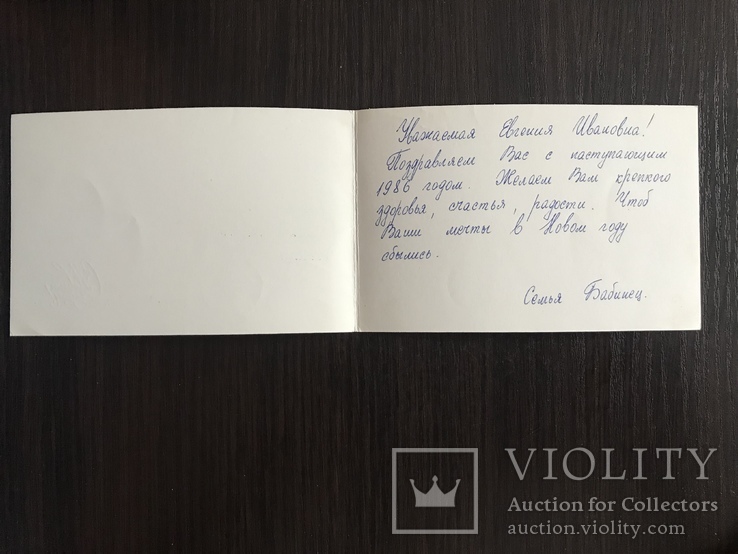 Уважаемая Евгения Ивановна!
Поздравляем Вас с наступающим
1986 годом. Желаем Вам крепкого
здоровья, счастья, радости. Чтоб
Ваши мечты в Новом году
сбылись.
Семья Бабинец.
VIOLITY
Auction for Collectors
auction.violity.com